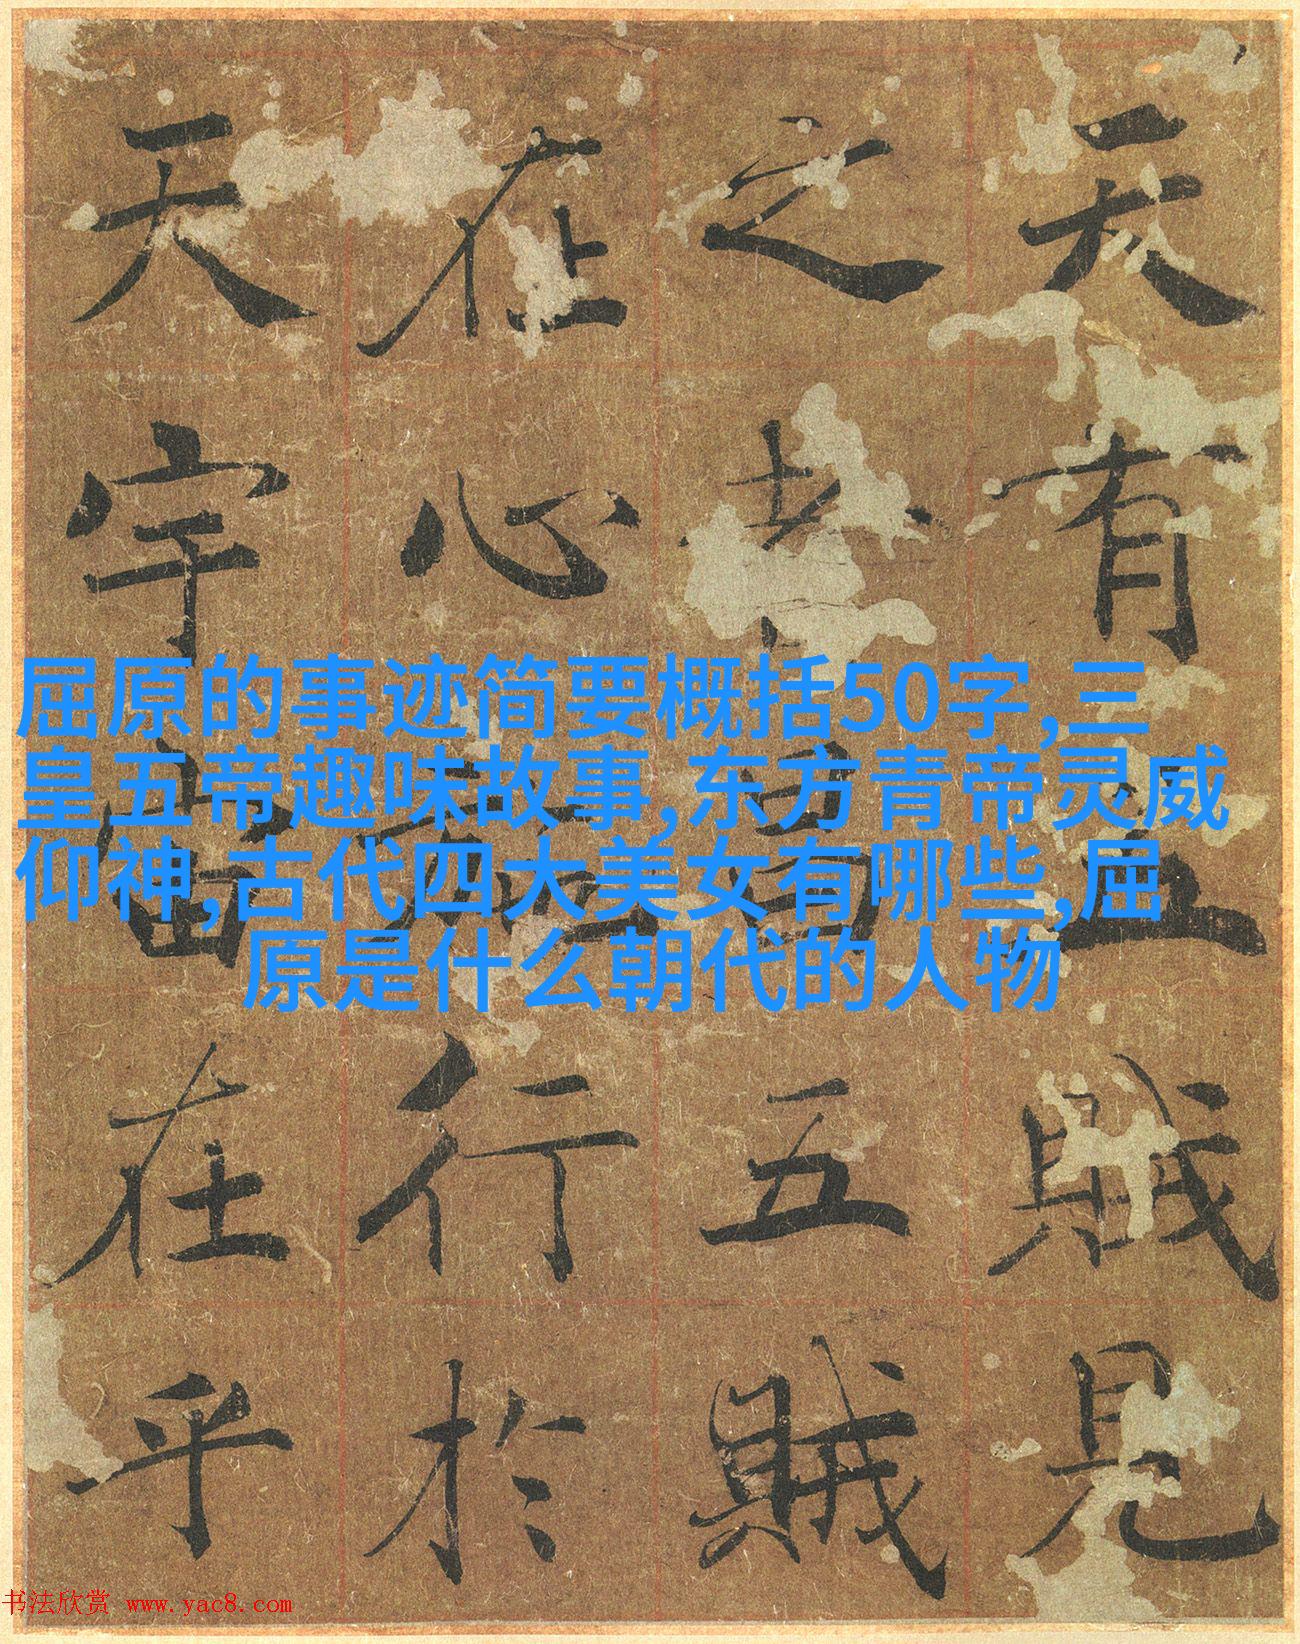 天有五賊見
之者昌五賊
在心施行於
天宇宙在乎
屈原的事迹简要概括50字,三
皇五帝趣味故事,东方青帝灵威
仰神,古代四大美女有哪些,屈
原是什么朝代的人物
书法欣赏 www.yac8.com